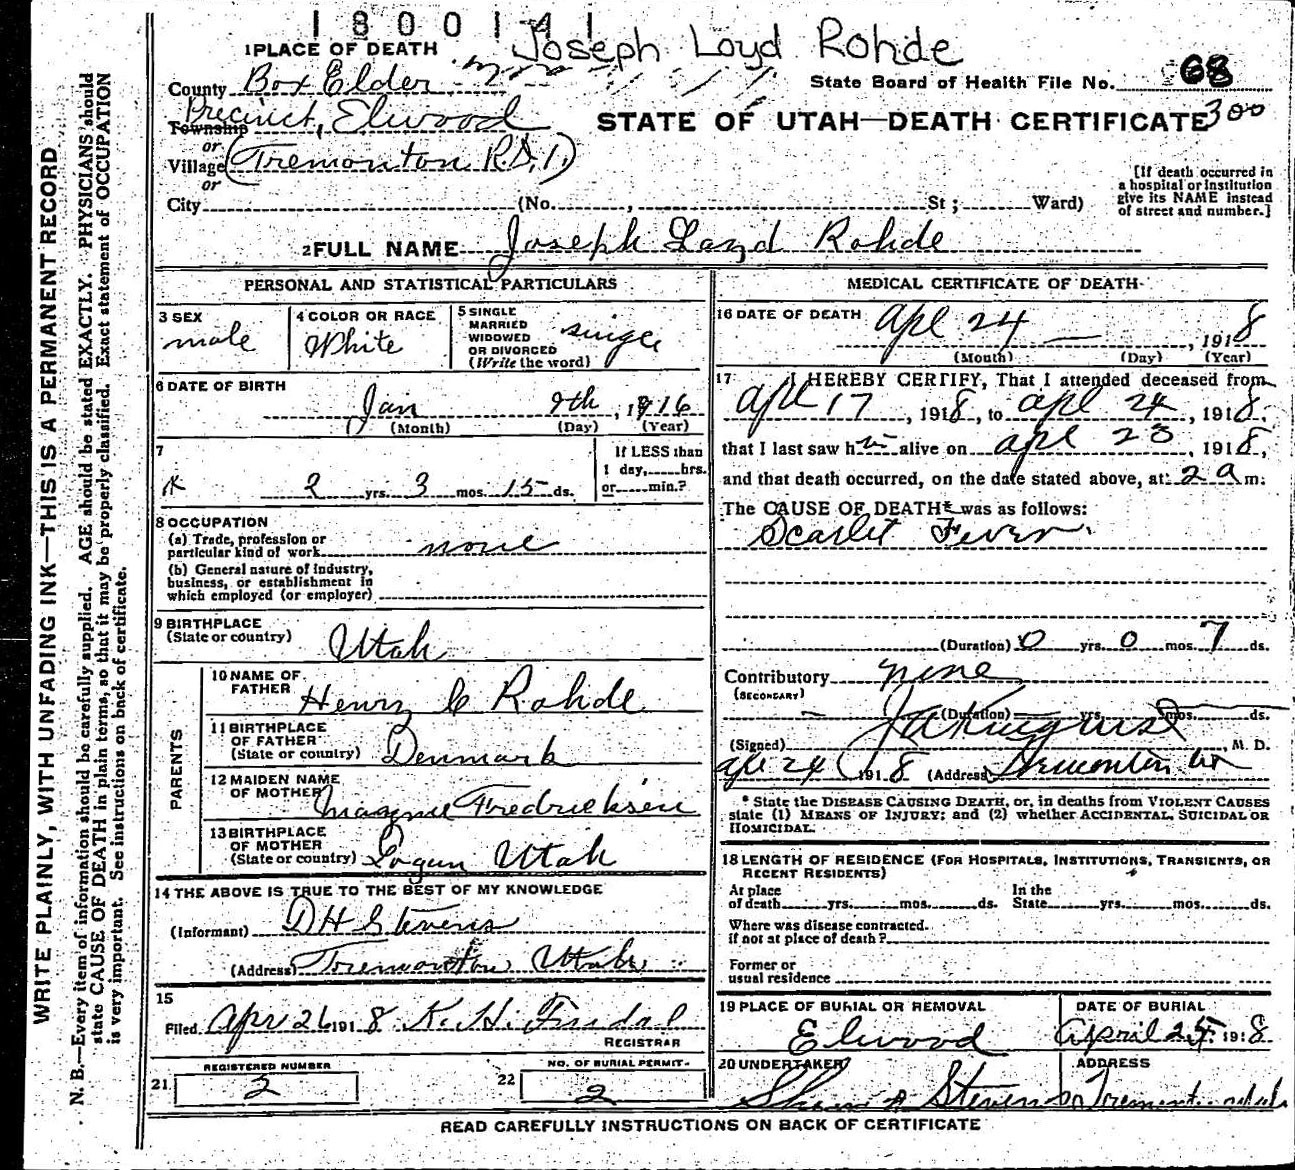 1800141
Joseph Loyd Rohde
1 PLACE OF DEATH
County Box Elder
State Board of Health File No. 68
300
Precinct, Elwood
Township
or
STATE OF UTAH—DEATH CERTIFICATE
Village (Tremonton R.D.1.)
or
City (No. , St; Ward)
[If death occurred in
a hospital or institution
give its NAME instead
of street and number.]
2 FULL NAME Joseph Layd Rohde
WRITE PLAINLY, WITH UNFADING INK—THIS IS A PERMANENT RECORD
N. B.—Every item of information should be carefully supplied. AGE should be stated EXACTLY. PHYSICIANS should
state CAUSE OF DEATH in plain terms, so that it may be properly classified. Exact statement of OCCUPATION
is very important. See instructions on back of certificate.
PERSONAL AND STATISTICAL PARTICULARS
3 SEX
male
4 COLOR OR RACE
White
5 SINGLE
MARRIED
WIDOWED
OR DIVORCED
(Write the word)
single
6 DATE OF BIRTH
Jan 9th, 1916
(Month) (Day) (Year)
7
2 yrs. 3 mos. 15 ds.
If LESS than
1 day, hrs.
or min.?
8 OCCUPATION
(a) Trade, profession or
particular kind of work none
(b) General nature of industry,
business, or establishment in
which employed (or employer)
9 BIRTHPLACE
(State or country) Utah
PARENTS
10 NAME OF
FATHER Henry C Rohde
11 BIRTHPLACE
OF FATHER
(State or country) Denmark
12 MAIDEN NAME
OF MOTHER Fredricksen
13 BIRTHPLACE
OF MOTHER
(State or country) Logan Utah
14 THE ABOVE IS TRUE TO THE BEST OF MY KNOWLEDGE
(Informant) D H Stevens
(Address) Tremonton Utah
15
Filed Apr 26 1918 K. H. Fridal
REGISTRAR
REGISTERED NUMBER
21 2
NO. OF BURIAL PERMIT
22 2
MEDICAL CERTIFICATE OF DEATH
16 DATE OF DEATH
Apl 24 — , 1918
(Month) (Day) (Year)
17 I HEREBY CERTIFY, That I attended deceased from
Apl 17, 1918, to Apl 24, 1918,
that I last saw him alive on Apl 23, 1918,
and that death occurred, on the date stated above, at 2 a m.
The CAUSE OF DEATH* was as follows:
Scarlet Fever.
(Duration) 0 yrs. 0 mos. 7 ds.
Contributory none
(SECONDARY)
(Duration) yrs. mos. ds.
(Signed) , M. D.
Apr 24 1918 (Address) Tremonton Ut
* State the DISEASE CAUSING DEATH, or, in deaths from VIOLENT CAUSES
state (1) MEANS OF INJURY; and (2) whether ACCIDENTAL, SUICIDAL OR
HOMICIDAL.
18 LENGTH OF RESIDENCE (FOR HOSPITALS, INSTITUTIONS, TRANSIENTS, OR
RECENT RESIDENTS)
At place
of death yrs. mos. ds.
In the
State yrs. mos. ds.
Where was disease contracted.
if not at place of death?
Former or
usual residence
19 PLACE OF BURIAL OR REMOVAL
Elwood
DATE OF BURIAL
April 25 1918
20 UNDERTAKER
Stevens
ADDRESS
READ CAREFULLY INSTRUCTIONS ON BACK OF CERTIFICATE